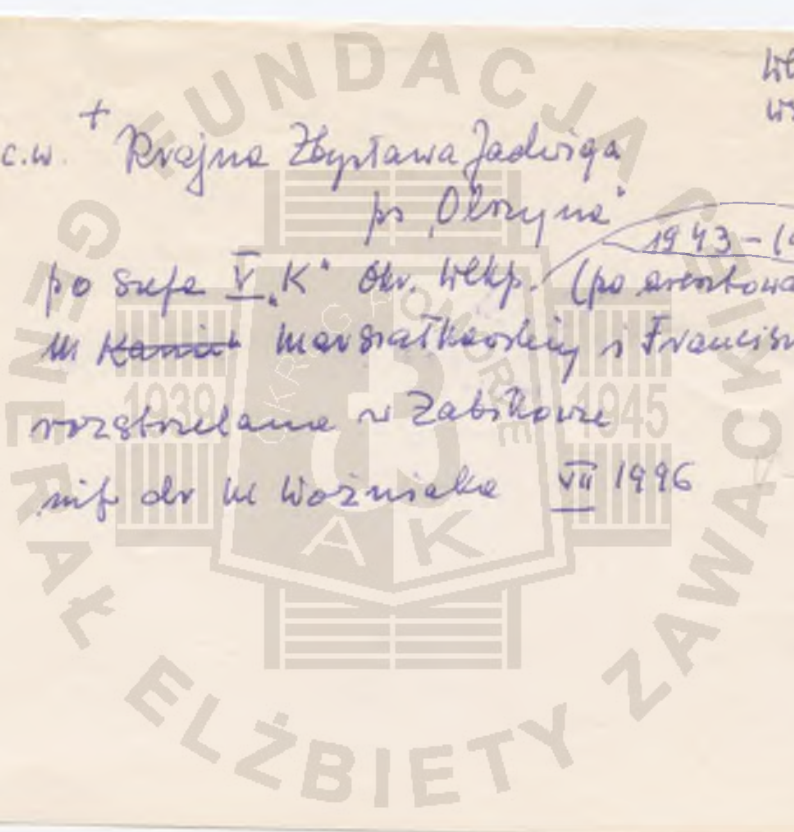 c.w. + Krajna Zbysława Jadwiga
ps "Olszyna"
1943-19
po szefa V "K" Okr. Wlkp. (po aresztowa
M Marszałkowskiej i Francisz
rozstrzelana w Żabikowie
inf dr M Woźniaka VII 1996
FUNDACJA GENERAŁ ELŻBIETY ZAWACKIEJ
OKRĘG POMORZE
1939 1945
AK